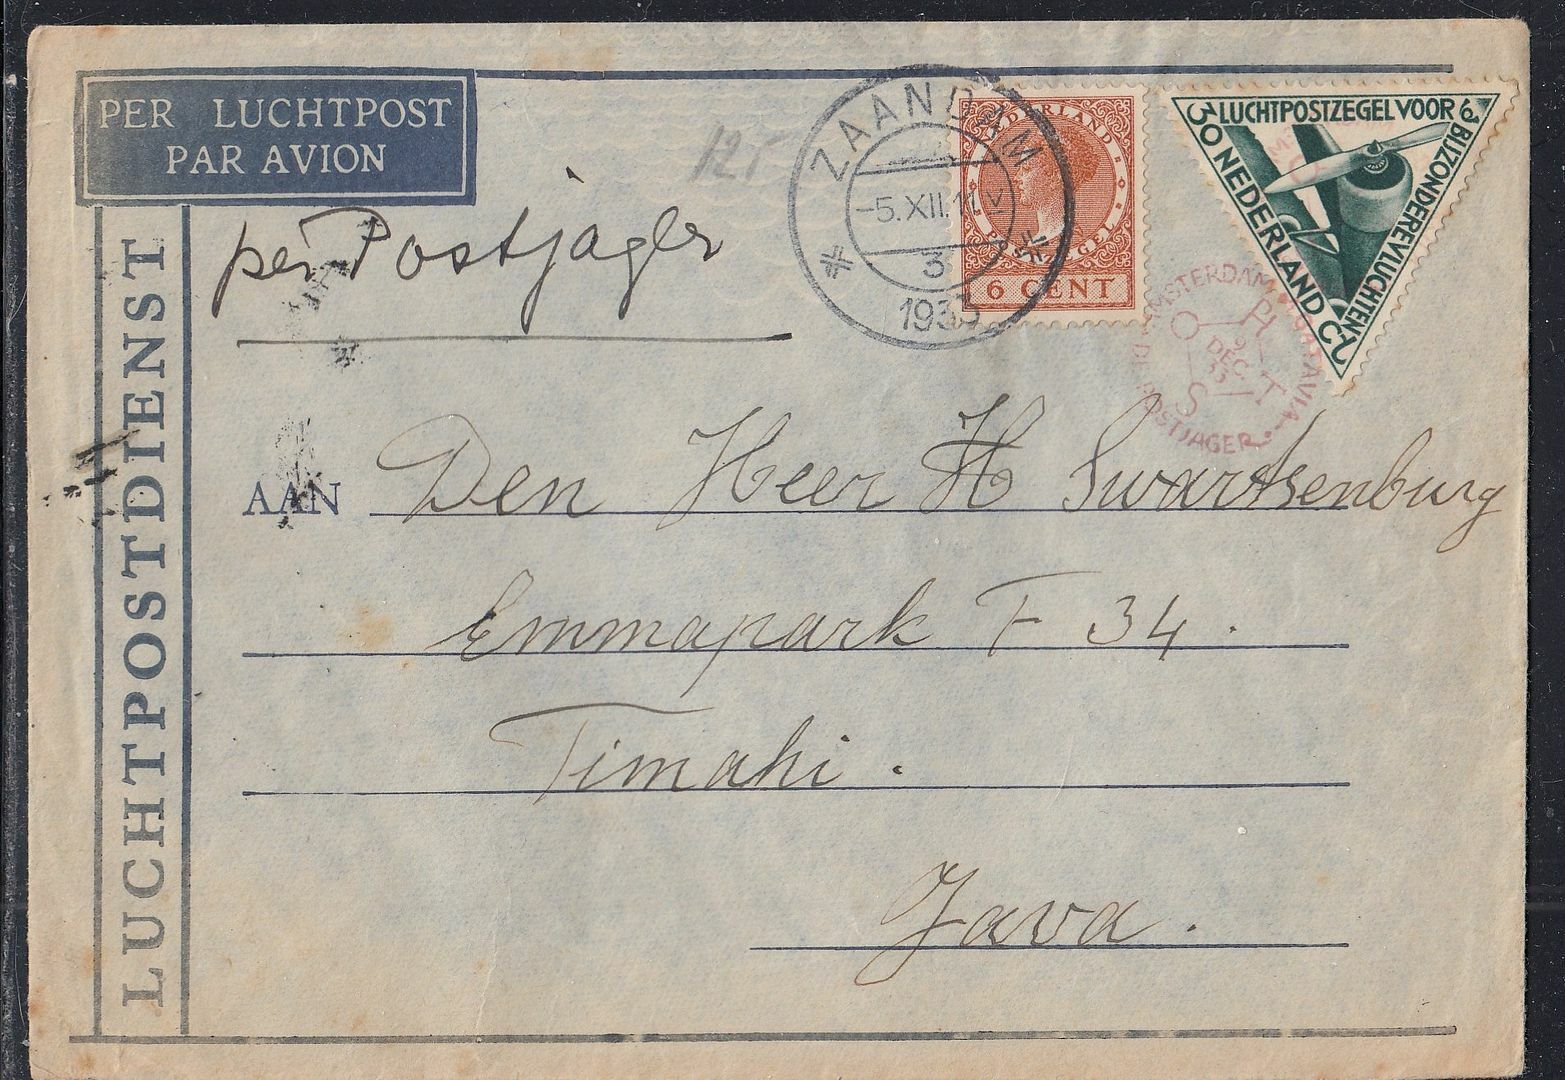 PER LUCHTPOST
PAR AVION
LUCHTPOSTDIENST
per Postjager
125
ZAANDAM
-5.XII.11 V
3
1933
NEDERLAND
POSTZEGEL
6 CENT
LUCHTPOSTZEGEL VOOR
BIJZONDERE VLUCHTEN
30 NEDERLAND Ct
AMSTERDAM
BATAVIA
POSTJAGER
O H
9
DEC
33
S T
AAN Den Heer H Swartsenburg
Emmapark F 34.
Timahi.
Java.